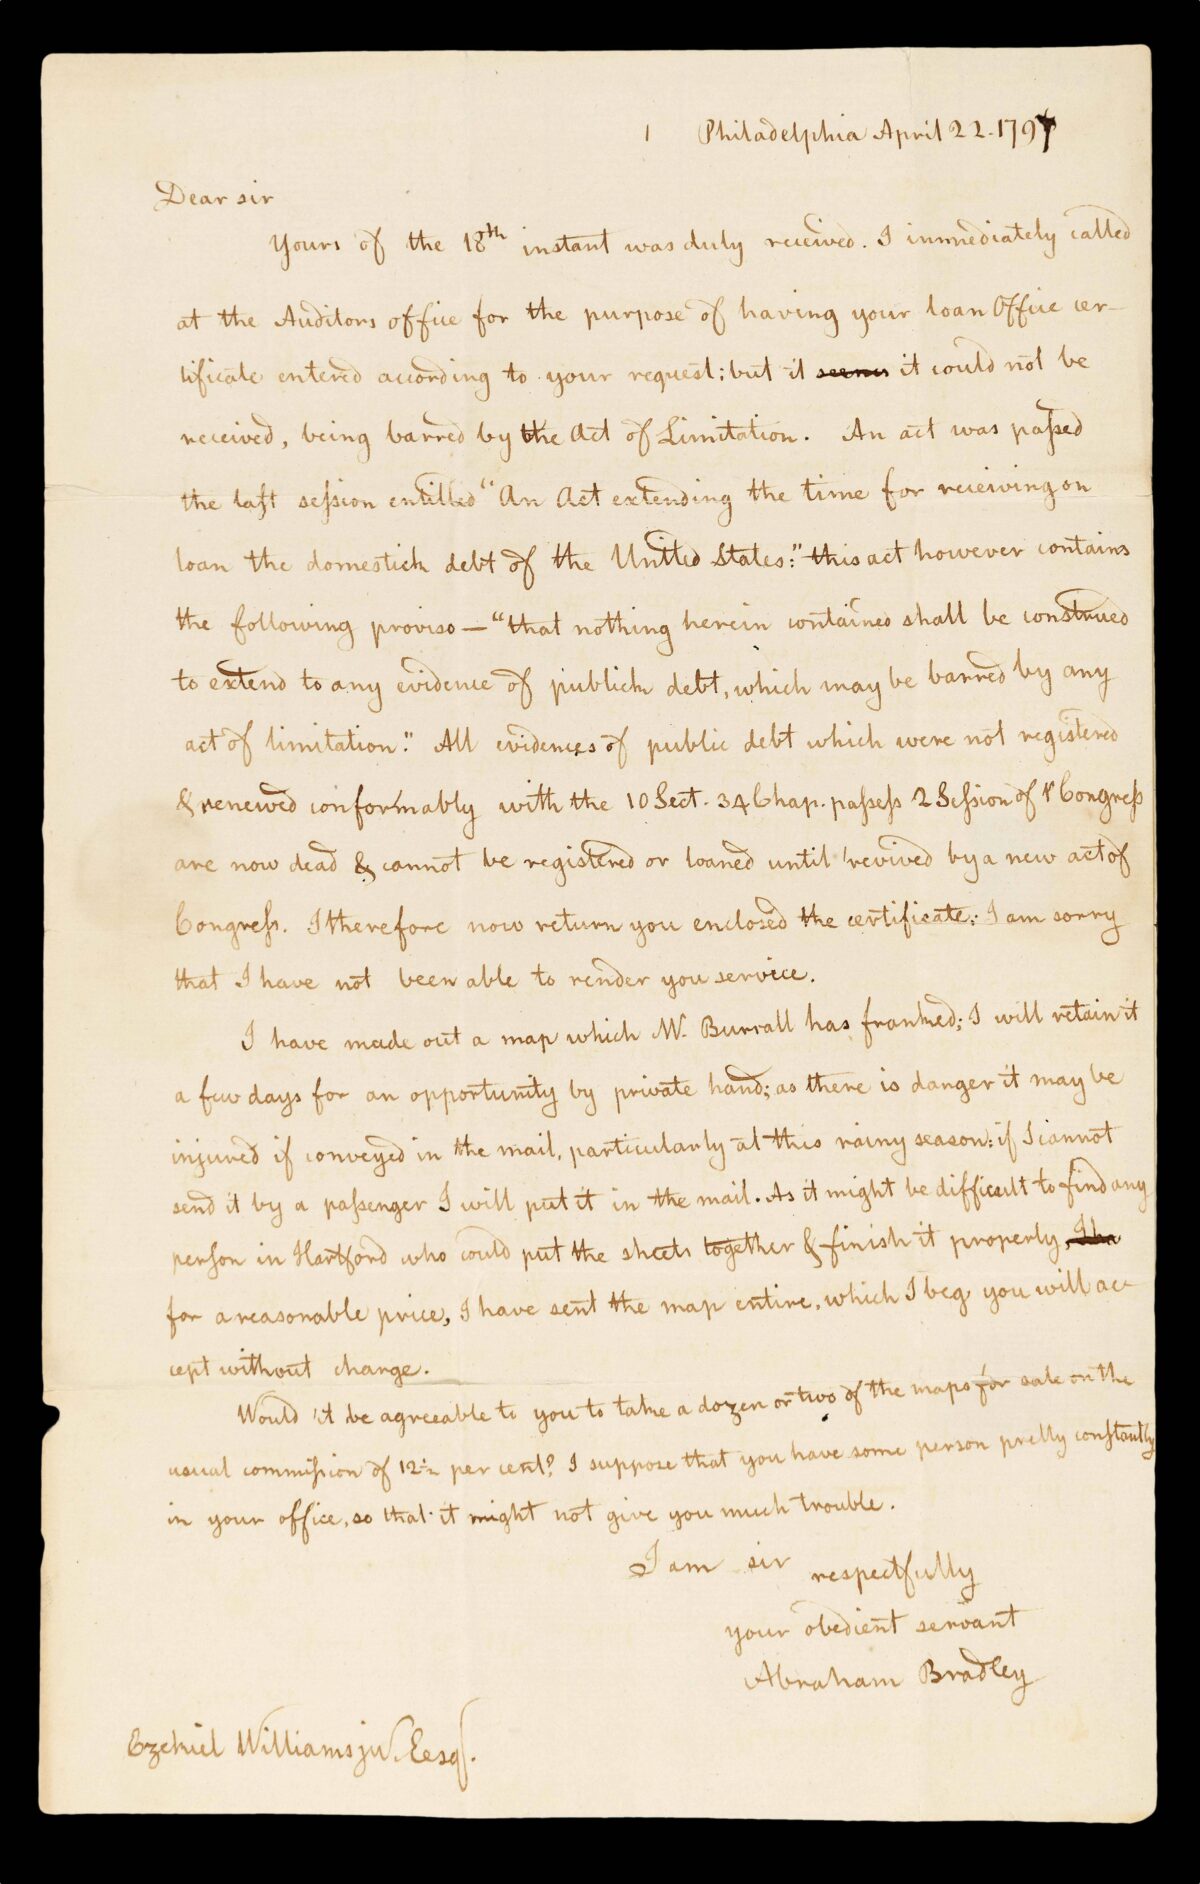 1 Philadelphia April 22. 1797
Dear sir
Yours of the 18th instant was duly received. I immediately called
at the Auditors office for the purpose of having your loan Office cer-
tificate entered according to your request; but it seems it could not be
received, being barred by the Act of Limitation. An act was paſsed
the laſt seſsion entitled "An Act extending the time for receiving on
loan the domestick debt of the United States:" this act however contains
the following proviso — "that nothing herein contained shall be construed
to extend to any evidence of publick debt, which may be barred by any
act of limitation." All evidences of public debt which were not registered
& renewed conformably with the 10 Sect. 34 Chap. paſseſs 2 Seſsion of 1t Congreſs
are now dead & cannot be registered or loaned until revived by a new act of
Congreſs. I therefore now return you enclosed the certificate: I am sorry
that I have not been able to render you service.
I have made out a map which Mr. Burrall has franked; I will retain it
a few days for an opportunity by private hand; as there is danger it may be
injured if conveyed in the mail, particularly at this rainy season: if I cannot
send it by a paſsenger I will put it in the mail. As it might be difficult to find any
perſon in Hartford who could put the sheets together & finish it properly,
for a reasonable price, I have sent the map entire, which I beg you will ac-
cept without charge.
Would it be agreeable to you to take a dozen or two of the maps for sale on the
usual commiſsion of 12½ per cent? I suppose that you have some person pretty conſtantly
in your office, so that it might not give you much trouble.
I am sir respectfully
your obedient servant
Abraham Bradley
Ezekiel Williams jur. Eesq.